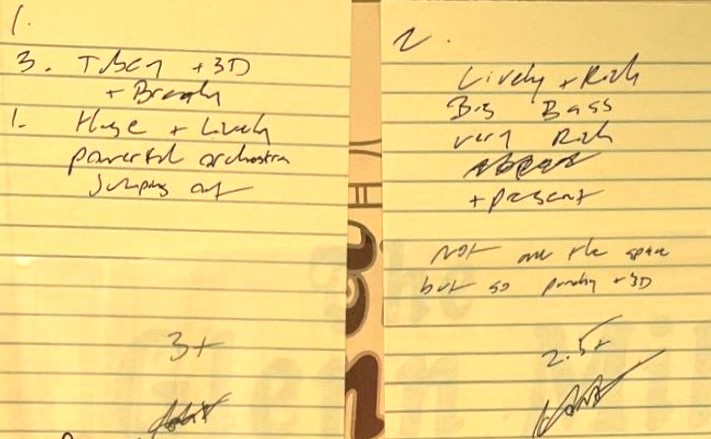 1.
3. Tubey + 3D
+ Breathy
1. Huge + Lively
powerful orchestra
Jumping out
3+
2.
Lively + Rich
Big Bass
very Rich
+ present
not all the space
but so punchy + 3D
2.5+